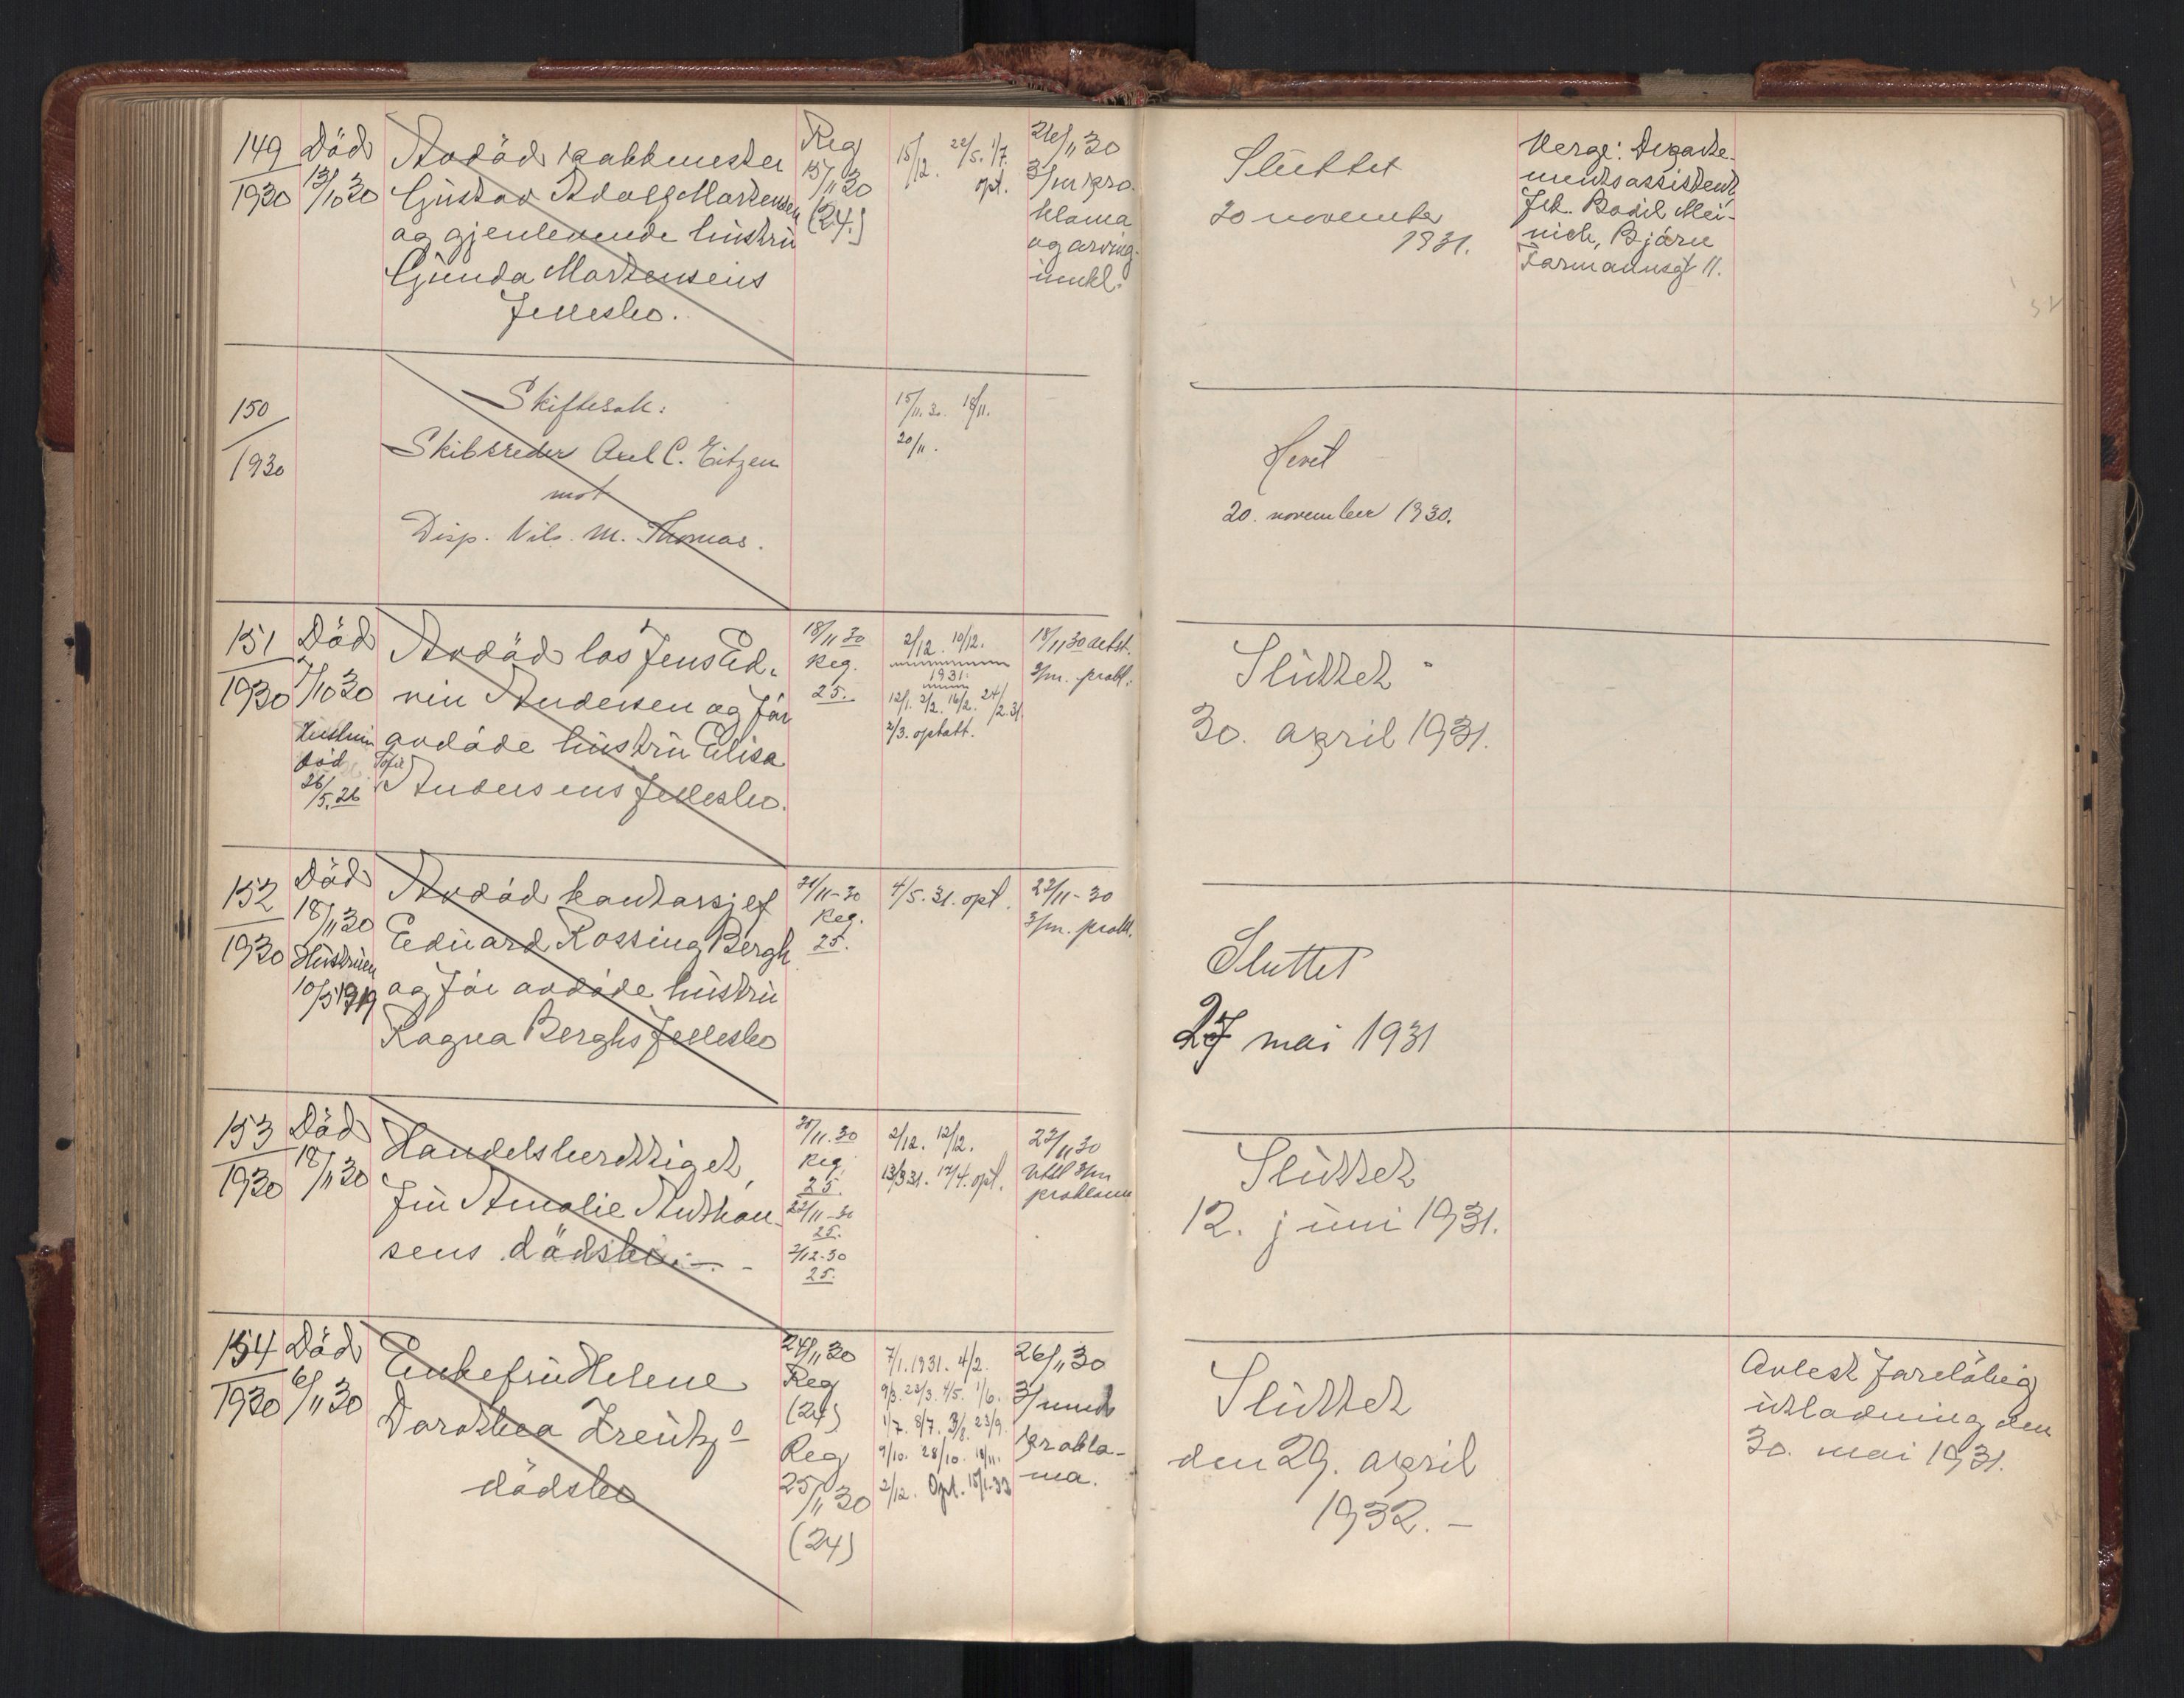 149
1930
Död
13/10 30
Avdöd pakkmester
Gustav Adolf Martensen
og gjenlevende hustru
Gunda Martensens
fellesbo.
Reg
15/11 30
(24.)
15/12. 22/5. 1/7.
opt.
26/11 30
3/m pro-
klama
og arving-
innkl.
Sluttet
20 november
1931.
Verge: Departe-
mentsassistent
Frk. Bodil Mei-
nich, Bjärn
Farmannsgt 11.
150
1930
Skiftesak:
Skibsreder Axel C. Eitzen
mot
Disp. Nils. M. Thomas.
15/11.30. 18/11.
20/11.
Hevet
20. november 1930.
151
1930
Död
7/10 30
Hustruin
död
26/5.26
Avdöd los Jens Ed-
vin Andersen og för
avdöde hustru Elisa
Sofie
Andersens fellesbo.
18/11 30
Reg.
25.
2/12. 10/12.
1931.
12/1. 2/2. 16/2. 24/2.31.
2/3. optatt.
18/11 30 utst.
3/m. prokl.
Sluttet
30. april 1931.
152
1930
Död
18/11 30
Hustruen
10/5 1919
Avdöd kontorsjef
Eduard Rossing Bergh
og för avdöde hustru
Ragna Berghs fellesbo
21/11-30
Reg.
25.
4/5.31. opt.
22/11-30
3/m. prokl.
Sluttet
27 mai 1931
153
1930
Död
18/11 30
Handelsberettiget,
fru Amalie Anthon-
sens dödsbo.-
20/11.30
Reg.
25.
22/11-30
25.
2/12-30
25.
2/12. 12/12.
13/3 31. 17/4. opt.
22/11 30
Utst 3/m
proklama
Sluttet
12. juni 1931.
154
1930
Död
6/11 30
Enkefru Helene
Dorothea Kreutz's
dödsbo
24/11 30
Reg
(24)
Reg
25/11 30
(24)
7/1.1931. 4/2.
9/3. 23/3. 4/5. 1/6.
1/7. 8/7. 3/8. 23/9.
9/10. 28/10. 18/11.
2/12. Opt. 15/1.33
26/11 30
3/mnds
prokla-
ma.
Sluttet
den 29. april
1932.-
Avlest foreløbig
utladning den
30. mai 1931.